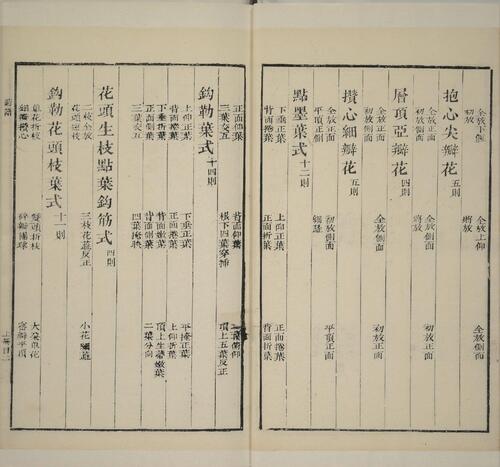 全放下側 全放上仰 將放
抱心尖瓣花 五則
全放正面 全放側面 初放正面
初放側面 將放
層頂亞瓣花 四則
全放正面 全放側面 初放正面
初放側面
攢心細瓣花 五則
全放正面 初放側面 平頂正面
平頂正側
點墨葉式 十二則
下垂正葉 上仰正葉 正面捲葉
背面捲葉 正面折葉 背面折葉
正面側葉 背面仰葉
三葉交互 根下四葉穿插 頂上五葉反正
鈎勒葉式 十四則
上仰正葉 下垂正葉 平捲正葉
背面捲葉 正面捲葉 上仰折葉
下垂折葉 背面嫩葉 頂上生嫩葉
正面側葉 背面側葉 二葉分向
三葉交互 四葉掩映
花頭生枝點葉鈎筋式 四則
二枝全放 三枝花蕋反正 小花
花頭迎枝
鈎勒花頭枝葉式 十一則
單花折枝 雙頭折枝 大朶單花
細瓣攢心 碎瓣攢球 密瓣平頂